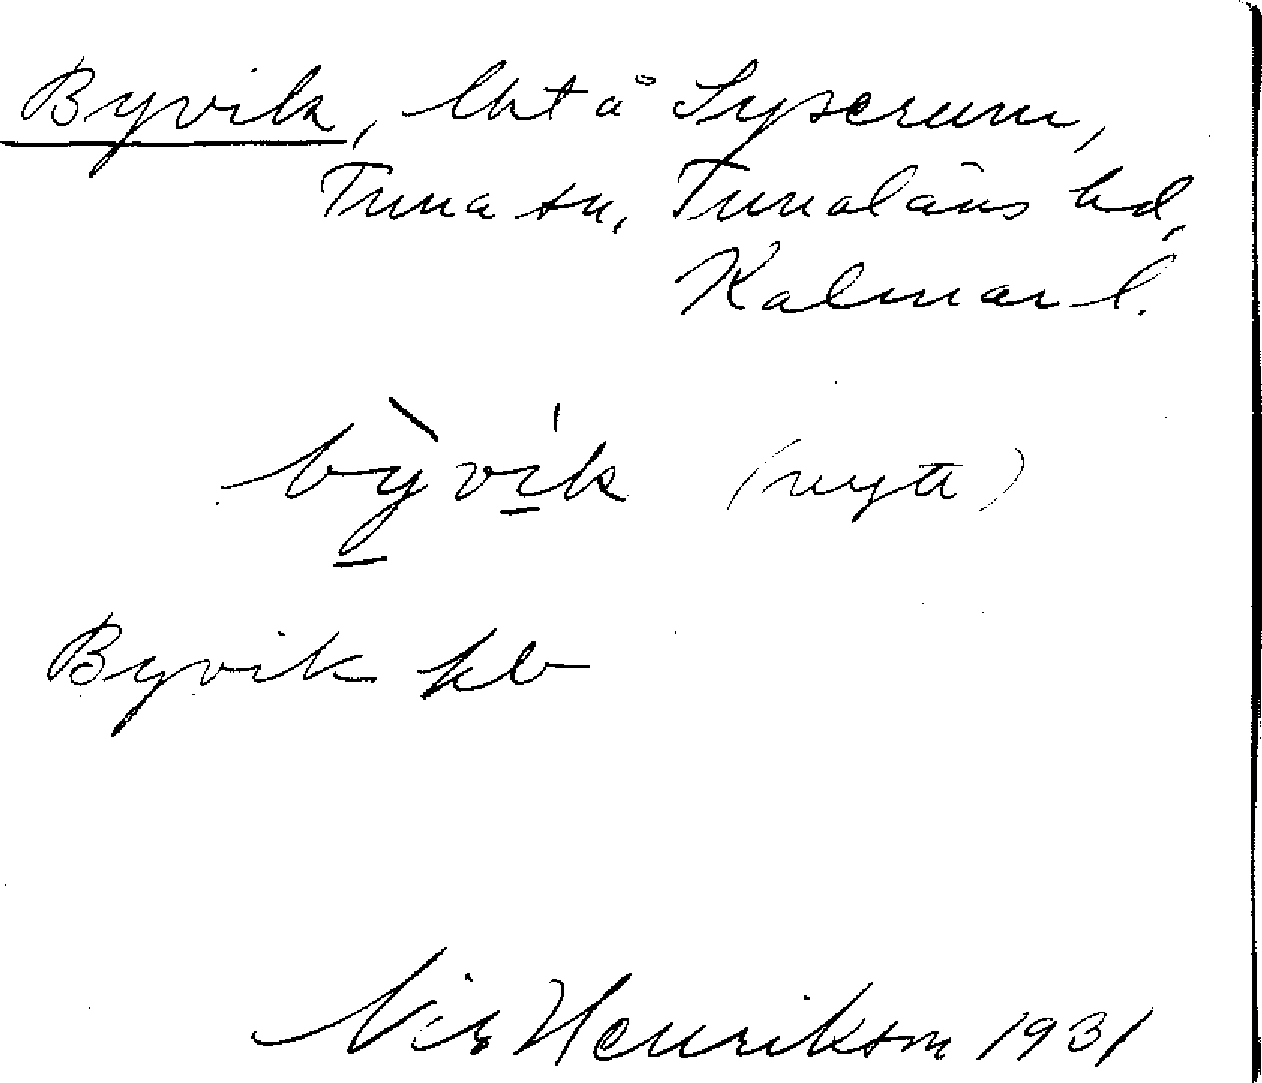 Byvik, lht å Syserum,
Tuna sn, Tunaläns hd,
Kalmar l.
bỳ̱ví̱k (nytt)
Byvik kb
Nils Henrikson 1931